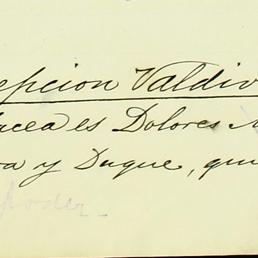 epcion Valdiv
acea es Dolores M
a y Duque, qui
poder